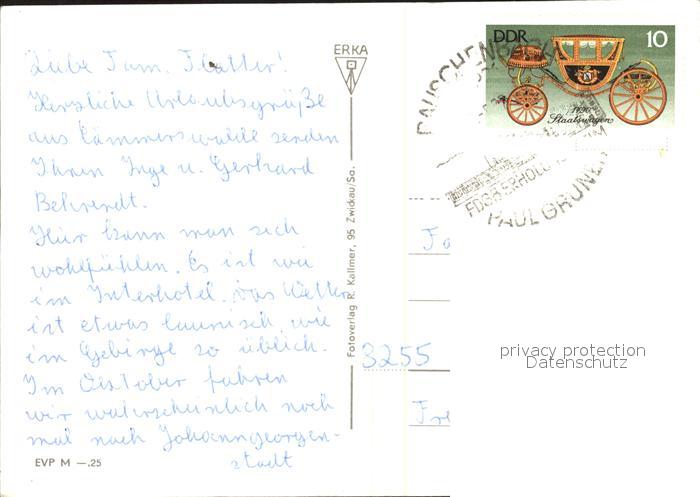 Liebe Fam. Flatter!
Herzliche Urlaubsgrüße
aus Lämmerswalde senden
Ihnen Inge u. Gerhard
Behrendt.
Hier kann man sich
wohlfühlen. Es ist wie
im Interhotel. Das Wetter
ist etwas launisch, wie
im Gebirge so üblich.
Im Oktober fahren
wir wahrscheinlich noch
mal nach Johanngeorgen-
stadt
EVP M —.25
ERKA
Fotoverlag R. Kallmer, 95 Zwickau/Sa.
DDR 10
1790
Staatswagen
RAUSCHENBACH
FDGB ERHOLUNGSHEIM
PAUL GRUNER
3255
privacy protection
Datenschutz